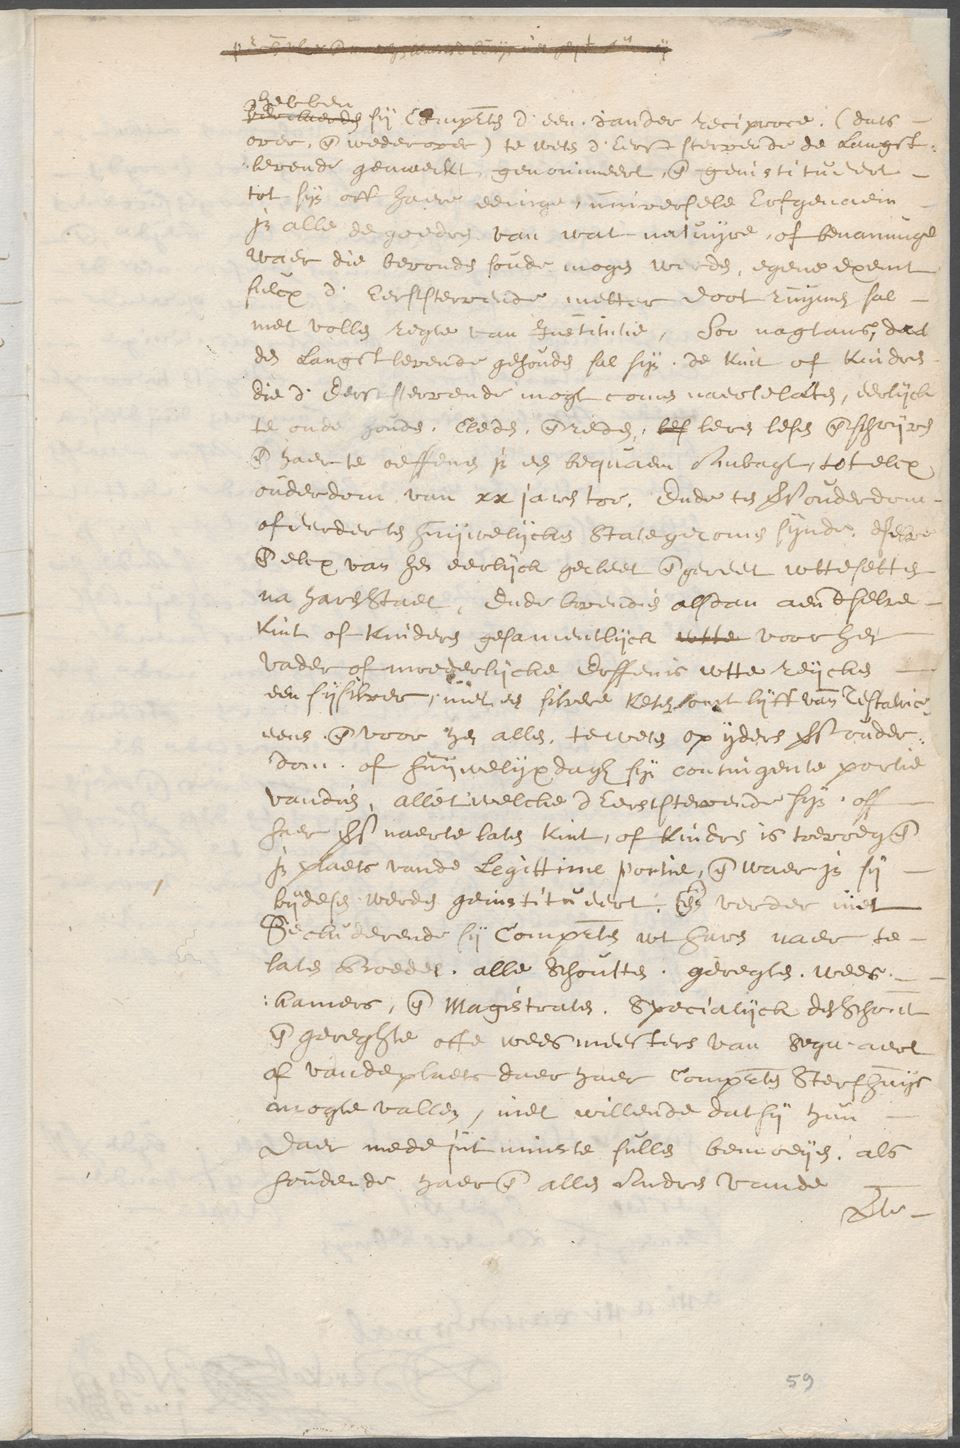 hebben
sij Comp:ten d' een d'ander reciproce. (dats
over, en wederover) te weten d' Eerststervende de Langst-
levende genomineert, en geinstitueert
tot sijn off haere eenige, universele Erfgenaem
in alle de goedren van wat natuijre, of benaminge
waer die bevonden soude mogen werden, egene exemt
sulcx d' Eerststervende metter doot ruijmen sal
met vollen regte van Institutie, Soo nogtans, dat
den Langstlevende gehouden sal sijn de kint of kindren
die d' Eerststervende mogt comen naertelaten, eerlijck
te onderhouden, Cleden, en reden, leren lesen en schrijven
en haer te oeffenen in een bequaem Ambagt, tot elcx
ouderdom van xx jaren toe, Ende ten ouderdom
of eerder ten huijwelijcken State gecomen sijnde, deselve
en elcx van hen eerlijck gecleet en gereet uttesetten
na haren Staet, Ende boven dien alsdan aen deselve
kint of kinders gesamentlijck voor hen
vader of moederlijcke Erffenis utte reijcken
een silvere
eens en voor hen allen, te weten op ijders ouder-
dom of huijwelijxdagh sijn contingente portie
van dien, alle 'twelcke d'Eerststervende sijn off
haer naerte laten kint, of kindren is toevoegen
in plaets vande Legittime portie, en waer in sij
bij desen werden geinstitueert. En verder met
Secluderende sij Comp:ten ut haren naer te
laten Boedel alle Schoutten geregten wees-
kamers, en Magistraten, Specialijck den Schout
en gereghte offe weesmeesters van
of vande plaets daer haer Comp:ten Sterfhuijs
mogte vallen, niet willende dat sij hun
daer mede int minste sullen bemoeijen, als
houdende haer en allen Andren vande